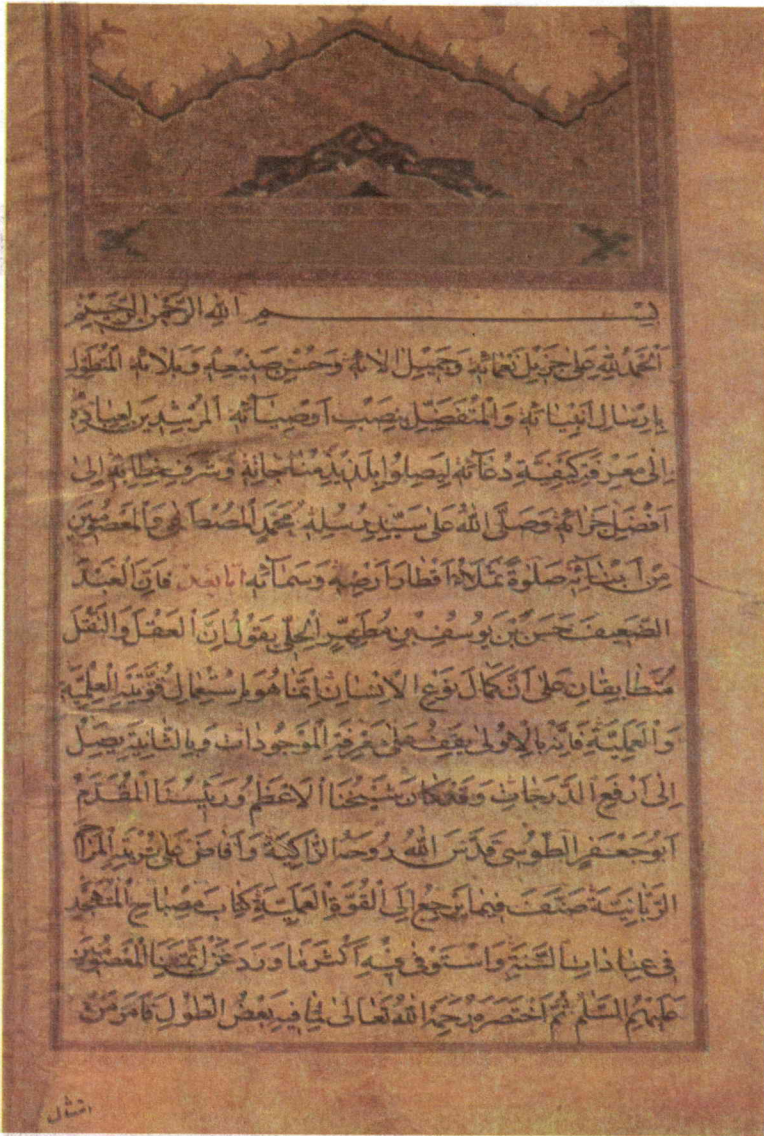 بسم الله الرحمن الرحيم
اَلْحَمْدُ لِلّٰهِ عَلىٰ جَزِيلِ نَعْمَائِهِ وَجَمِيلِ اٰلائِهِ وَحُسْنِ صَنِيعِهِ وَبَلائِهِ الْمُتَطَوِّلِ
بِاِرْسَالِ اَنْبِيَائِهِ وَالْمُتَفَضِّلِ بِنَصْبِ اَوْصِيَائِهِ الْمُرْشِدِينَ لِعِبَادِهِ
اِلىٰ مَعْرِفَةِ كَيْفِيَّةِ دُعَائِهِ لِيَصِلُوا بِلَذِيذِ مُنَاجَاتِهِ وَشَرَفِ خِطَابِهِ اِلىٰ
اَفْضَلِ جَزَائِهِ وَصَلَّى اللّٰهُ عَلىٰ سَيِّدِ رُسُلِهِ مُحَمَّدٍ الْمُصْطَفىٰ وَالْمَعْصُومِينَ
مِنْ اَبْنَائِهِ صَلٰوةً تَمْلَاُ اَقْطَارَ اَرْضِهِ وَسَمَائِهِ اَمَّا بَعْدُ فَاِنَّ الْعَبْدَ
الضَّعِيفَ حَسَنَ بْنَ يُوسُفَ بْنِ مُطَهَّرٍ الْحِلِّي يَقُولُ اِنَّ الْعَقْلَ وَالنَّقْلَ
مُتَطَابِقَانِ عَلىٰ اَنَّ كَمَالَ نَوْعِ الْاِنْسَانِ اِنَّمَا هُوَ بِاسْتِعْمَالِ قُوَّتَيْهِ الْعِلْمِيَّةِ
وَالْعَمَلِيَّةِ فَاِنَّهُ بِالْاُولىٰ يَقِفُ عَلىٰ مَعْرِفَةِ الْمَوْجُودَاتِ وَبِالثَّانِيَةِ يَصِلُ
اِلىٰ اَرْفَعِ الدَّرَجَاتِ وَقَدْ كَانَ شَيْخُنَا الْاَعْظَمُ وَرَئِيسُنَا الْمُقَدَّمُ
اَبُو جَعْفَرٍ الطُّوسِي قَدَّسَ اللّٰهُ رُوحَهُ الزَّاكِيَةَ وَاَفَاضَ عَلىٰ تُرْبَتِهِ الْمَرَا
الرَّبَّانِيَّةَ صَنَّفَ فِيمَا يَرْجِعُ اِلَى الْقُوَّةِ الْعَمَلِيَّةِ كِتَابَ مِصْبَاحِ الْمُتَهَجِّدِ
فِي عِبَادَاتِ السَّنَةِ وَاسْتَوْفىٰ فِيهِ اَكْثَرَ مَا وَرَدَ عَنْ اَئِمَّتِنَا الْمَعْصُومِينَ
عَلَيْهِمُ السَّلٰمُ ثُمَّ اخْتَصَرَهُ رَحِمَهُ اللّٰهُ تَعَالىٰ فَبَقِيَ فِيهِ بَعْضُ الطُّولِ فَاَمَرَ مَنْ
امتثال